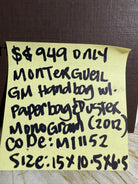 $$949 ONLY
MONTERGUEIL
GM HANDBAG W/.
PAPERBAG&DUSTER
MONOGRAM (2012)
CODE: M11152
SIZE: 15X10.5X6.5